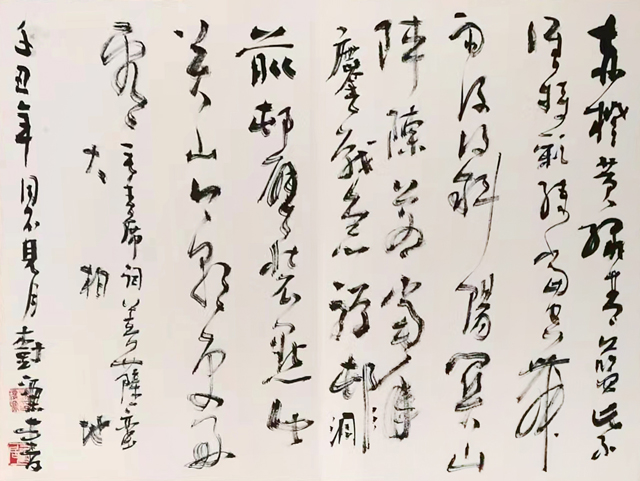 赤橙黄绿青蓝紫
谁持彩练当空舞
雨后复斜阳關山
阵阵苍當年
鏖战急弹邨洞
前邨壁装點此
關山今朝更好
看 毛主席词菩萨蛮
大柏地
辛丑年 不見月